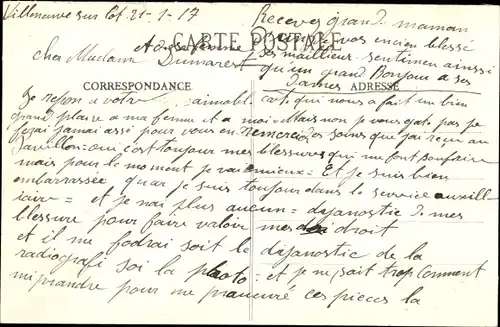 Villeneuve sur Lot 21-1-17
Recevez grand maman
CARTE POSTALE
vos encien blessé
ses meilleur sentimen ainssi
cher Madame Dumarest
qu'un grand Bonjour a ses
Dames
CORRESPONDANCE
ADRESSE
Je repon a votre aimable carte qui nous a fait un bien
grand plaire a ma femme et a moi = Mais non je vous gate pas je
feçai jamai assé pour vous en remercié des soins que j'ai reçu au
pavillon = oui c'est toujour mes blessures qui me font souffrire
mais pour le moment je vai mieux = Et je suis bien
embarrassée quar je suis toujour dans le service auxill
iaire = et je nai plus aucun = diagnostic de mes
blessure pour faire valoir mes droit
et il me fodrai soit le diagnostic de la
radiografi soi la photo = et je ne sait trop comment
mi prandre pour me procuré ces pieces la